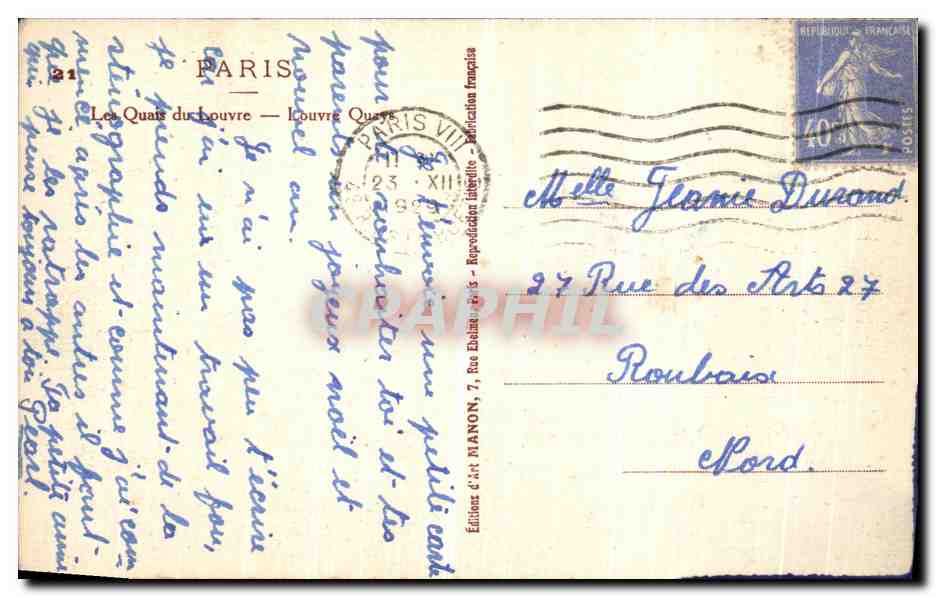 21
PARIS
Les Quais du Louvre — Louvre Quays
Je t'envoi une petite carte
pour souhaiter toi et tes
parents un joyeux noël et
nouvel an.
Je n'ai pas peu t'écrire
car j'ai eu un travail fou,
je prends maintenant de la
sténographie et comme j'ai com
mencé après les autres il faut
que je les rattrape. Ta petite amie
qui pense toujours a toi
Pearl.
Editions d'Art MANON, 7, Rue Ebelmen, Paris - Reproduction interdite - Fabrication française
PARIS VIII
23 XII
REPUBLIQUE FRANÇAISE
40c
POSTES
Melle Jeanie Durand.
27 Rue des Arts 27
Roubaix
Nord.
CPAPHIL